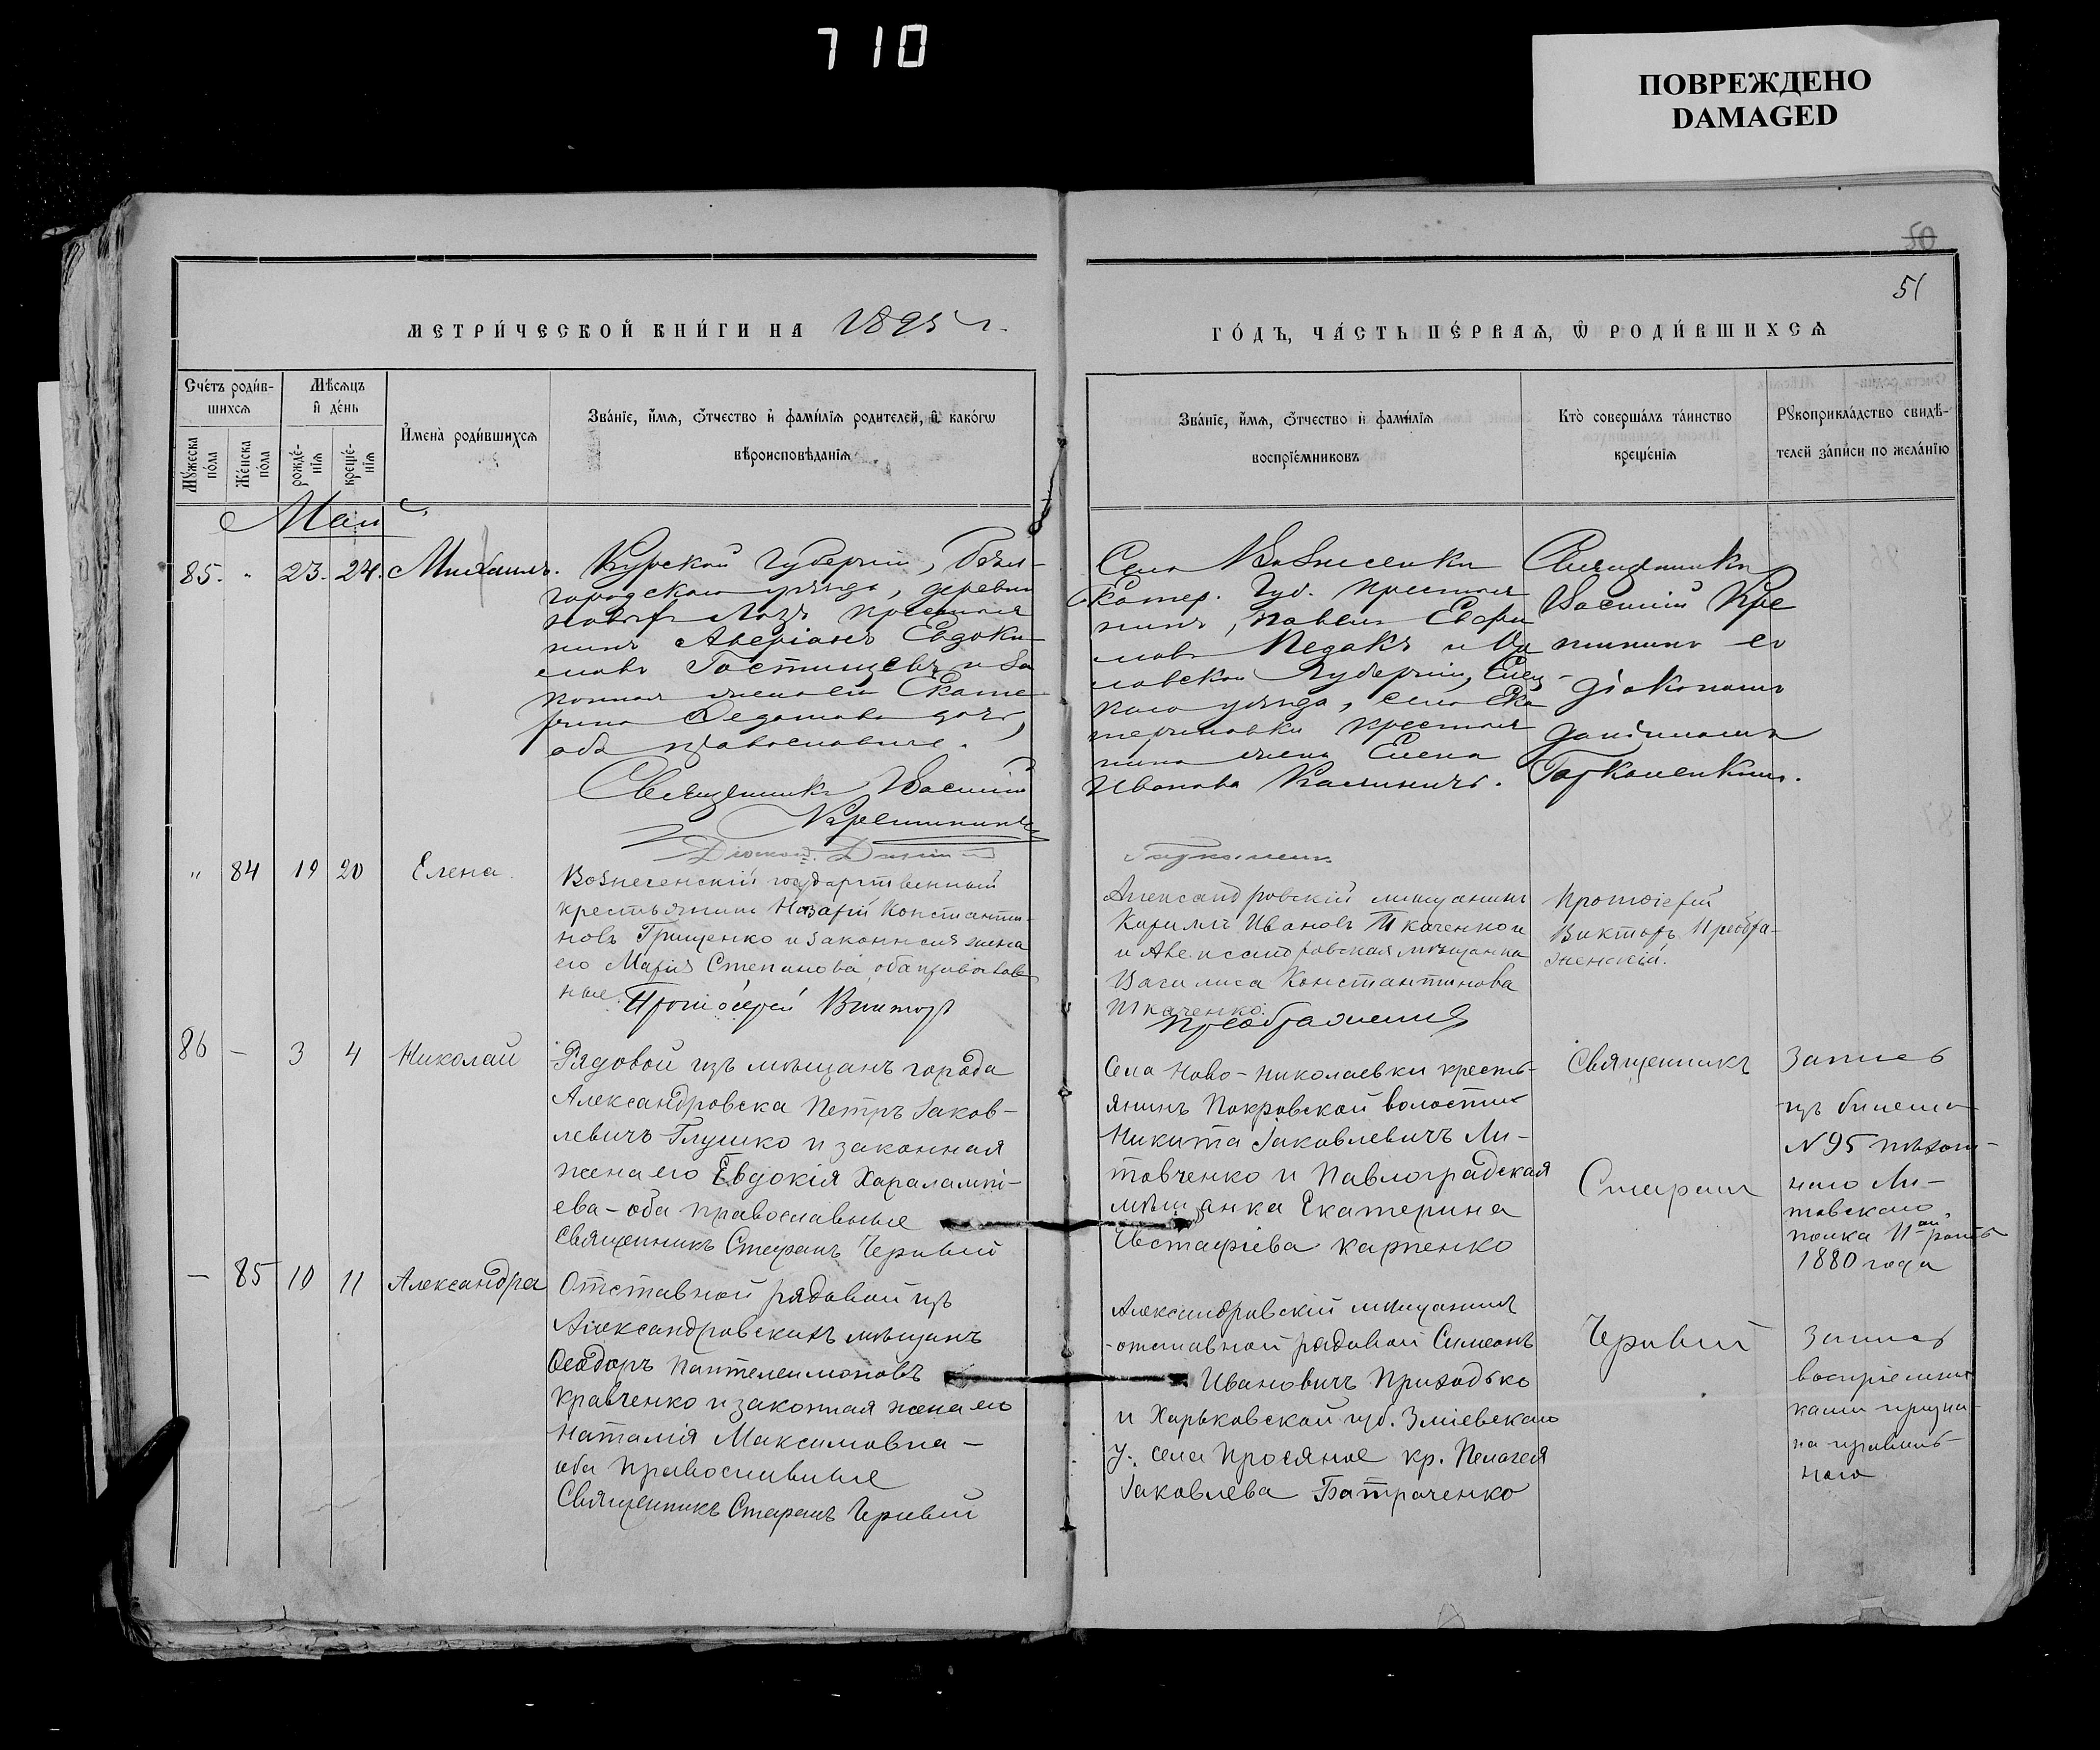 710
ПОВРЕЖДЕНО
DAMAGED
50
51
МЕТРИ́ЧЕСКОЙ КНИ́ГИ НА 1895 г.
ГО́ДЪ, ЧА́СТЬ ПЕ́РВАѦ, Ѽ РОДИ́ВШИХСѦ
Сче́тъ роди́в-
шихсѧ
Мѣ́сѧцъ
и҆ де́нь
Мꙋ́жеска
по́ла
Же́нска
по́ла
рожде́-
нїѧ
креще́-
нїѧ
И҆мена̀ роди́вшихсѧ
Зва́нїе, и҆́мѧ, ѻ҆́тчество и҆ фами́лїѧ родителей, и҆ како́гѡ
вѣроисповѣ́данїѧ
Зва́нїе, и҆́мѧ, ѻ҆́тчество и҆ фами́лїѧ
воспрїе́мниковъ
Кто̀ соверша́лъ та́инство
креще́нїѧ
Рꙋкоприкла́дство свидѣ́-
телей за́писи по жела́нїю
Май
85. " 23. 24. Михаилъ.
Курской губерніи, Бѣл-
городскаго уѣзда, деревни
крестья
нинъ Аверіанъ Евдоки-
мовъ Гостищевъ и за
конная жена его Екате
рина Федотова дочь,
оба православные.
Священникъ Василій
Крешкинъ
Діаконъ
Села Вознесенки
Екатер. Губ. крестья
нинъ, Павелъ Евфи
мовъ Педакъ и Ор
ловской Губерніи, Елец-
каго уѣзда, села Ека
териновки крестья
нина жена Елена
Иванова Калинигъ.
Священникъ
Василій Кре
шкинъ со
діакономъ
Даніиломъ
" 84 19 20 Елена
Вознесенскій государственный
крестьянинъ Назарій Константи-
новъ Грищенко и законная жена
его Марія Степанова, оба православ
ные. Протоіерей Викторъ
Александровскій мѣщанинъ
Кириллъ Ивановъ Ткаченко и
и Александровская мѣщанка
Василиса Константинова
Ткаченко.
Преображенскій
Протоіерей
Викторъ Преобра-
женскій.
86 — 3 4 Николай
Рядовой изъ мѣщанъ города
Александровска Петръ Іаков-
левичъ Глушко и законная
жена его Евдокія Харалампі-
ева - оба православные
Священникъ Стефанъ Червій
Села Ново-Николаевки кресть-
янинъ Покровской волости
Никита Іаковлевичъ Ли-
товченко и Павлоградская
мѣщанка Екатерина
Евстафіева Карпенко
Священникъ
Стефанъ
Запись
изъ билета
№95 пѣхот-
наго Ли-
товскаго
полка 11ой роты
1880 года
— 85 10 11 Александра
Отставной рядовой изъ
Александровскихъ мѣщанъ
Ѳеодоръ Пантелеимоновъ
Кравченко и законная жена его
Наталія Максимовна -
оба православные
Священникъ Стефанъ Червій
Александровскій мѣщанинъ
-отставной рядовой Симеонъ
Ивановичъ Приходько
и Харьковской губ. Зміевскаго
у. села Просяное кр. Пелагея
Іаковлева Батраченко
Червій
Запись
воспріемни
ками призна-
на правиль-
ною